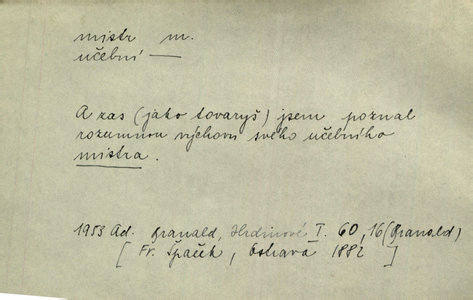 mistr m.
učební —
A zas (jako tovaryš) jsem poznal
rozumnou výchovu svého učebního
mistra.
1953 Ad. Branald, Hrdinové T. 60, 16 (Branald)
[ Fr. Špaček, Ostrava 1882 ]